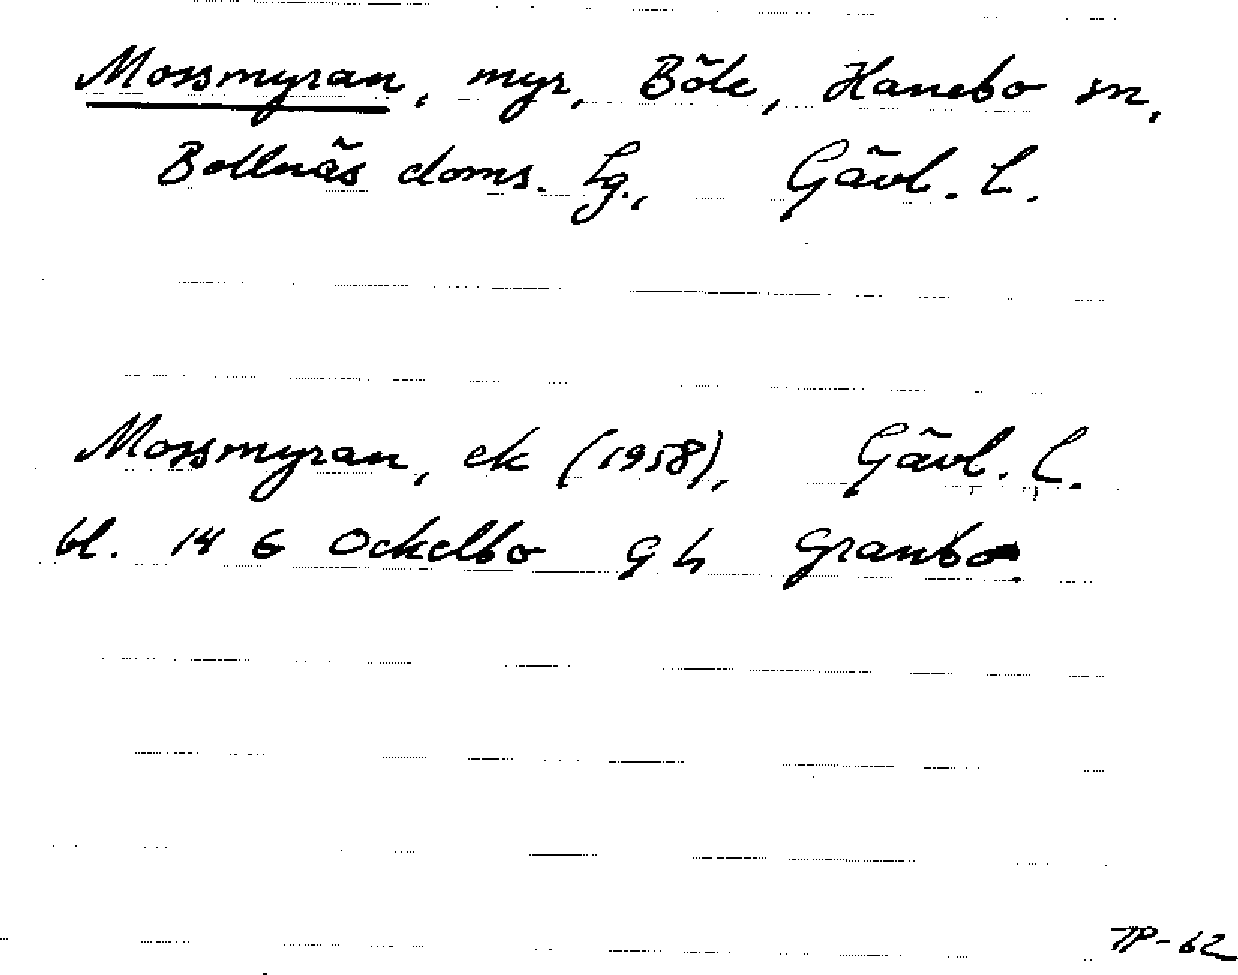 Mossmyran, myr, Böle, Hanebo sn,
Bollnäs doms. lg., Gävl. l.
Mossmyran, ek (1958), Gävl. l.
bl. 14 G Ockelbo 9 h Granbo.
TP-62